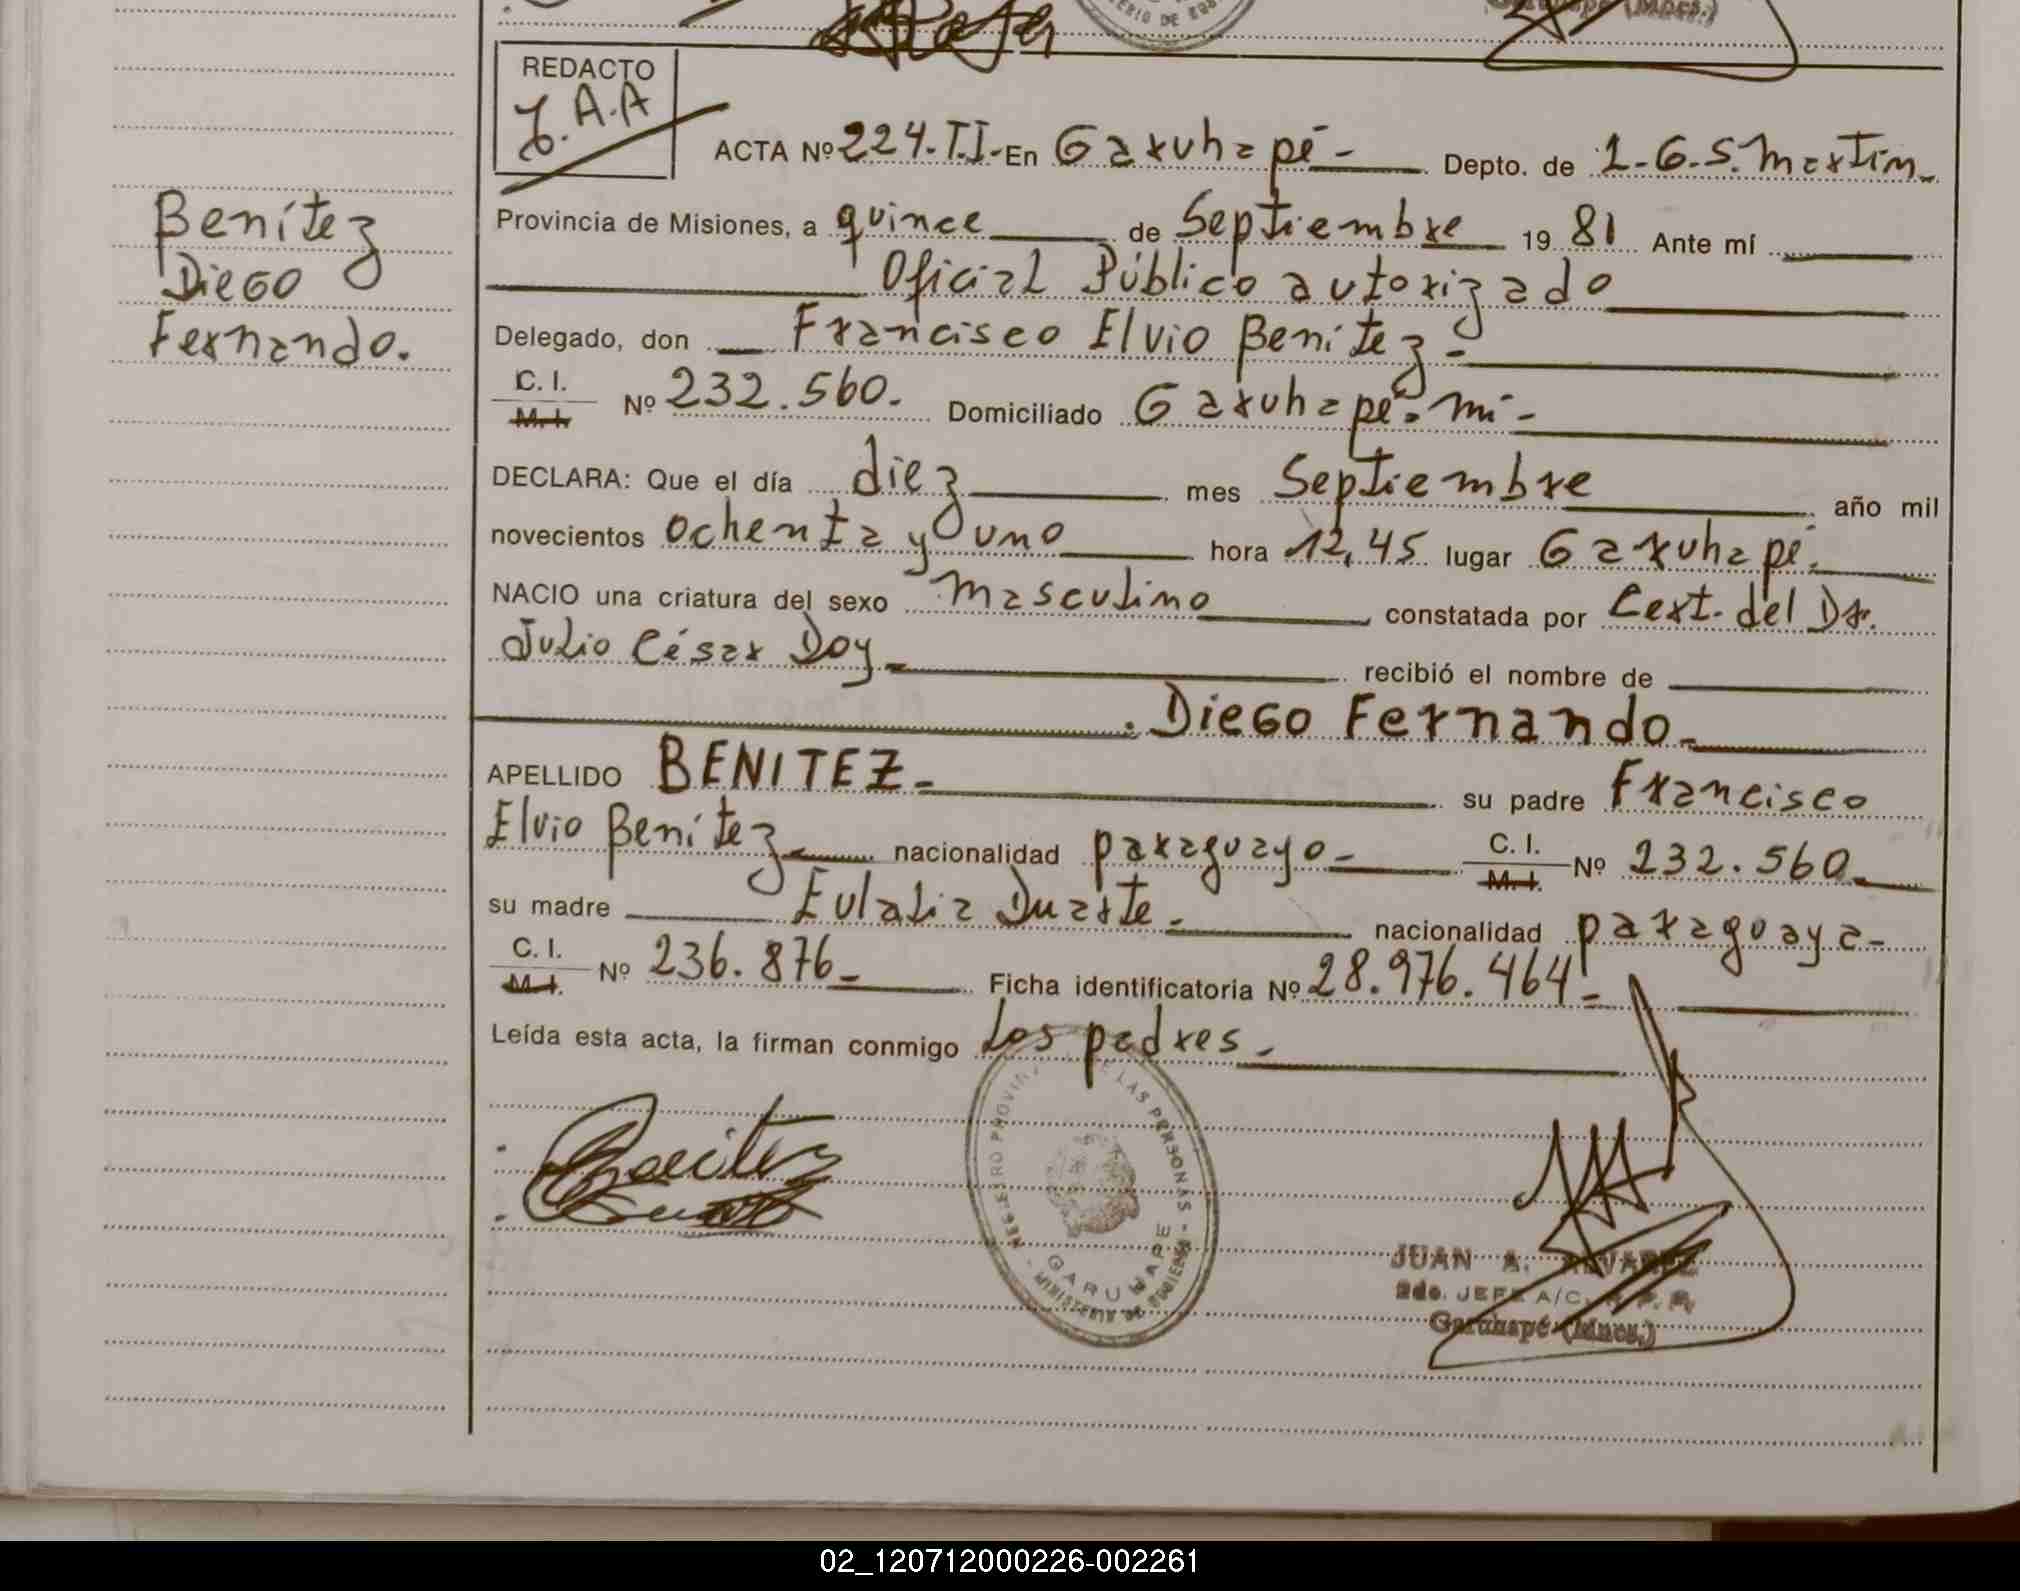 (Mnes.)
REDACTO
J.A.A
ACTA Nº 224.T.I.- En Garuhapé - Depto. de L.G.S. Martín.
Provincia de Misiones, a quince de Septiembre 1981 Ante mí
Oficial Público autorizado
Delegado, don Francisco Elvio Benítez -
C. I. M. I. Nº 232.560. Domiciliado Garuhapé - Mí -
DECLARA: Que el día diez mes Septiembre año mil
novecientos ochenta y uno hora 12,45 lugar Garuhapé.
NACIO una criatura del sexo masculino constatada por Cert. del Dr.
Julio César Doy recibió el nombre de
Diego Fernando.
APELLIDO BENITEZ su padre Francisco
Elvio Benítez nacionalidad paraguayo - C. I. M. I. Nº 232.560
su madre Eulalia Duarte - nacionalidad paraguaya -
C. I. M. I. Nº 236.876 Ficha identificatoria Nº 28.976.464 -
Leída esta acta, la firman conmigo Los padres -
Benítez
Diego
Fernando.
REGISTRO PROVIN DE LAS PERSONAS - MINISTERIO DE GOBIERNO -
GARUHAPE
JUAN A. ALVAREZ
2do. JEFE A/C. R. P. P.
Garuhapé (Mnes.)
02_120712000226-002261